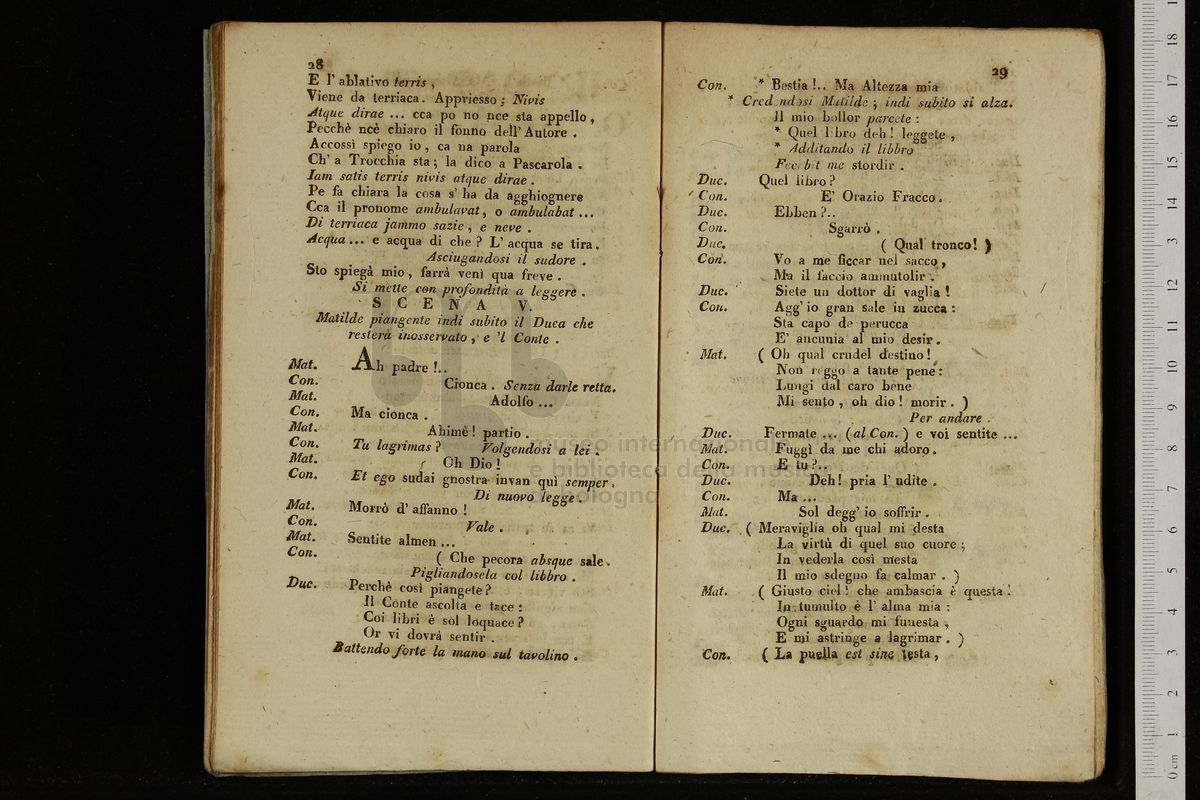 28
E l' ablativo terris ,
Viene da terriaca. Appriesso ; Nivis
Atque dirae ... cca po no nce sta appello ,
Pecchè ncè chiaro il fonno dell' Autore .
Accossì spiego io , ca na parola
Ch' a Trocchia sta ; la dico a Pascarola .
Iam satis terris nivis atque dirae .
Pe fa chiara la cosa s' ha da agghiognere
Cca il pronome ambulavat , o ambulabat ...
Di terriaca jammo sazie , e neve .
Acqua ... e acqua di che ? L' acqua se tira .
Asciugandosi il sudore .
Sto spiegà mio , farrà venì qua freve .
Si mette con profondità a leggere .
SCENA V.
Matilde piangente indi subito il Duca che
resterà inosservato , e 'l Conte .
Mat. Ah padre !..
Con. Cionca . Senza darle retta.
Mat. Adolfo ...
Con. Ma cionca .
Mat. Ahimè ! partio .
Con. Tu lagrimas ? Volgendosi a lei .
Mat. Oh Dio !
Con. Et ego sudai gnostra invan quì semper ,
Di nuovo legge .
Mat. Morrò d' affanno !
Con. Vale .
Mat. Sentite almen ...
Con. ( Che pecora absque sale .
Pigliandosela col libbro .
Duc. Perchè così piangete ?
Il Conte ascolta e tace :
Coi libri è sol loquace ?
Or vi dovrà sentir .
Battendo forte la mano sul tavolino .
29
Con. * Bestia !.. Ma Altezza mia
* Cred ndosi Matilde ; indi subito si alza.
Il mio bollor parcete :
* Quel l bro deh ! leggete ,
* Additando il libbro
me stordir .
Duc. Quel libro ?
Con. E' Orazio Fracco .
Duc. Ebben ?..
Con. Sgarrò .
Duc. ( Qual tronco ! )
Con. Vo a me ficcar nel sacco ,
Ma il faccio ammutolir .
Duc. Siete un dottor di vaglia !
Con. Agg' io gran sale in zucca :
Sta capo de perucca
E' ancunia al mio desir .
Mat. ( Oh qual crudel destino !
Non reggo a tante pene :
Lungi dal caro bene
Mi sento , oh dio ! morir . )
Per andare .
Duc. Fermate ... ( al Con. ) e voi sentite ...
Mat. Fuggì da me chi adoro .
Con. E tu ?..
Duc. Deh ! pria l' udite .
Con. Ma ...
Mat. Sol degg' io soffrir .
Duc. ( Meraviglia oh qual mi desta
La virtù di quel suo cuore ;
In vederla così mesta
Il mio sdegno fa calmar . )
Mat. ( Giusto ciel ! che ambascia è questa !
In tumulto è l' alma mia :
Ogni sguardo mi funesta ,
E mi astringe a lagrimar . )
Con. ( La puella est sine testa ,
museo internazionale
e biblioteca della musica
bologna
0 cm 1 2 3 4 5 6 7 8 9 10 11 12 13 14 15 16 17 18